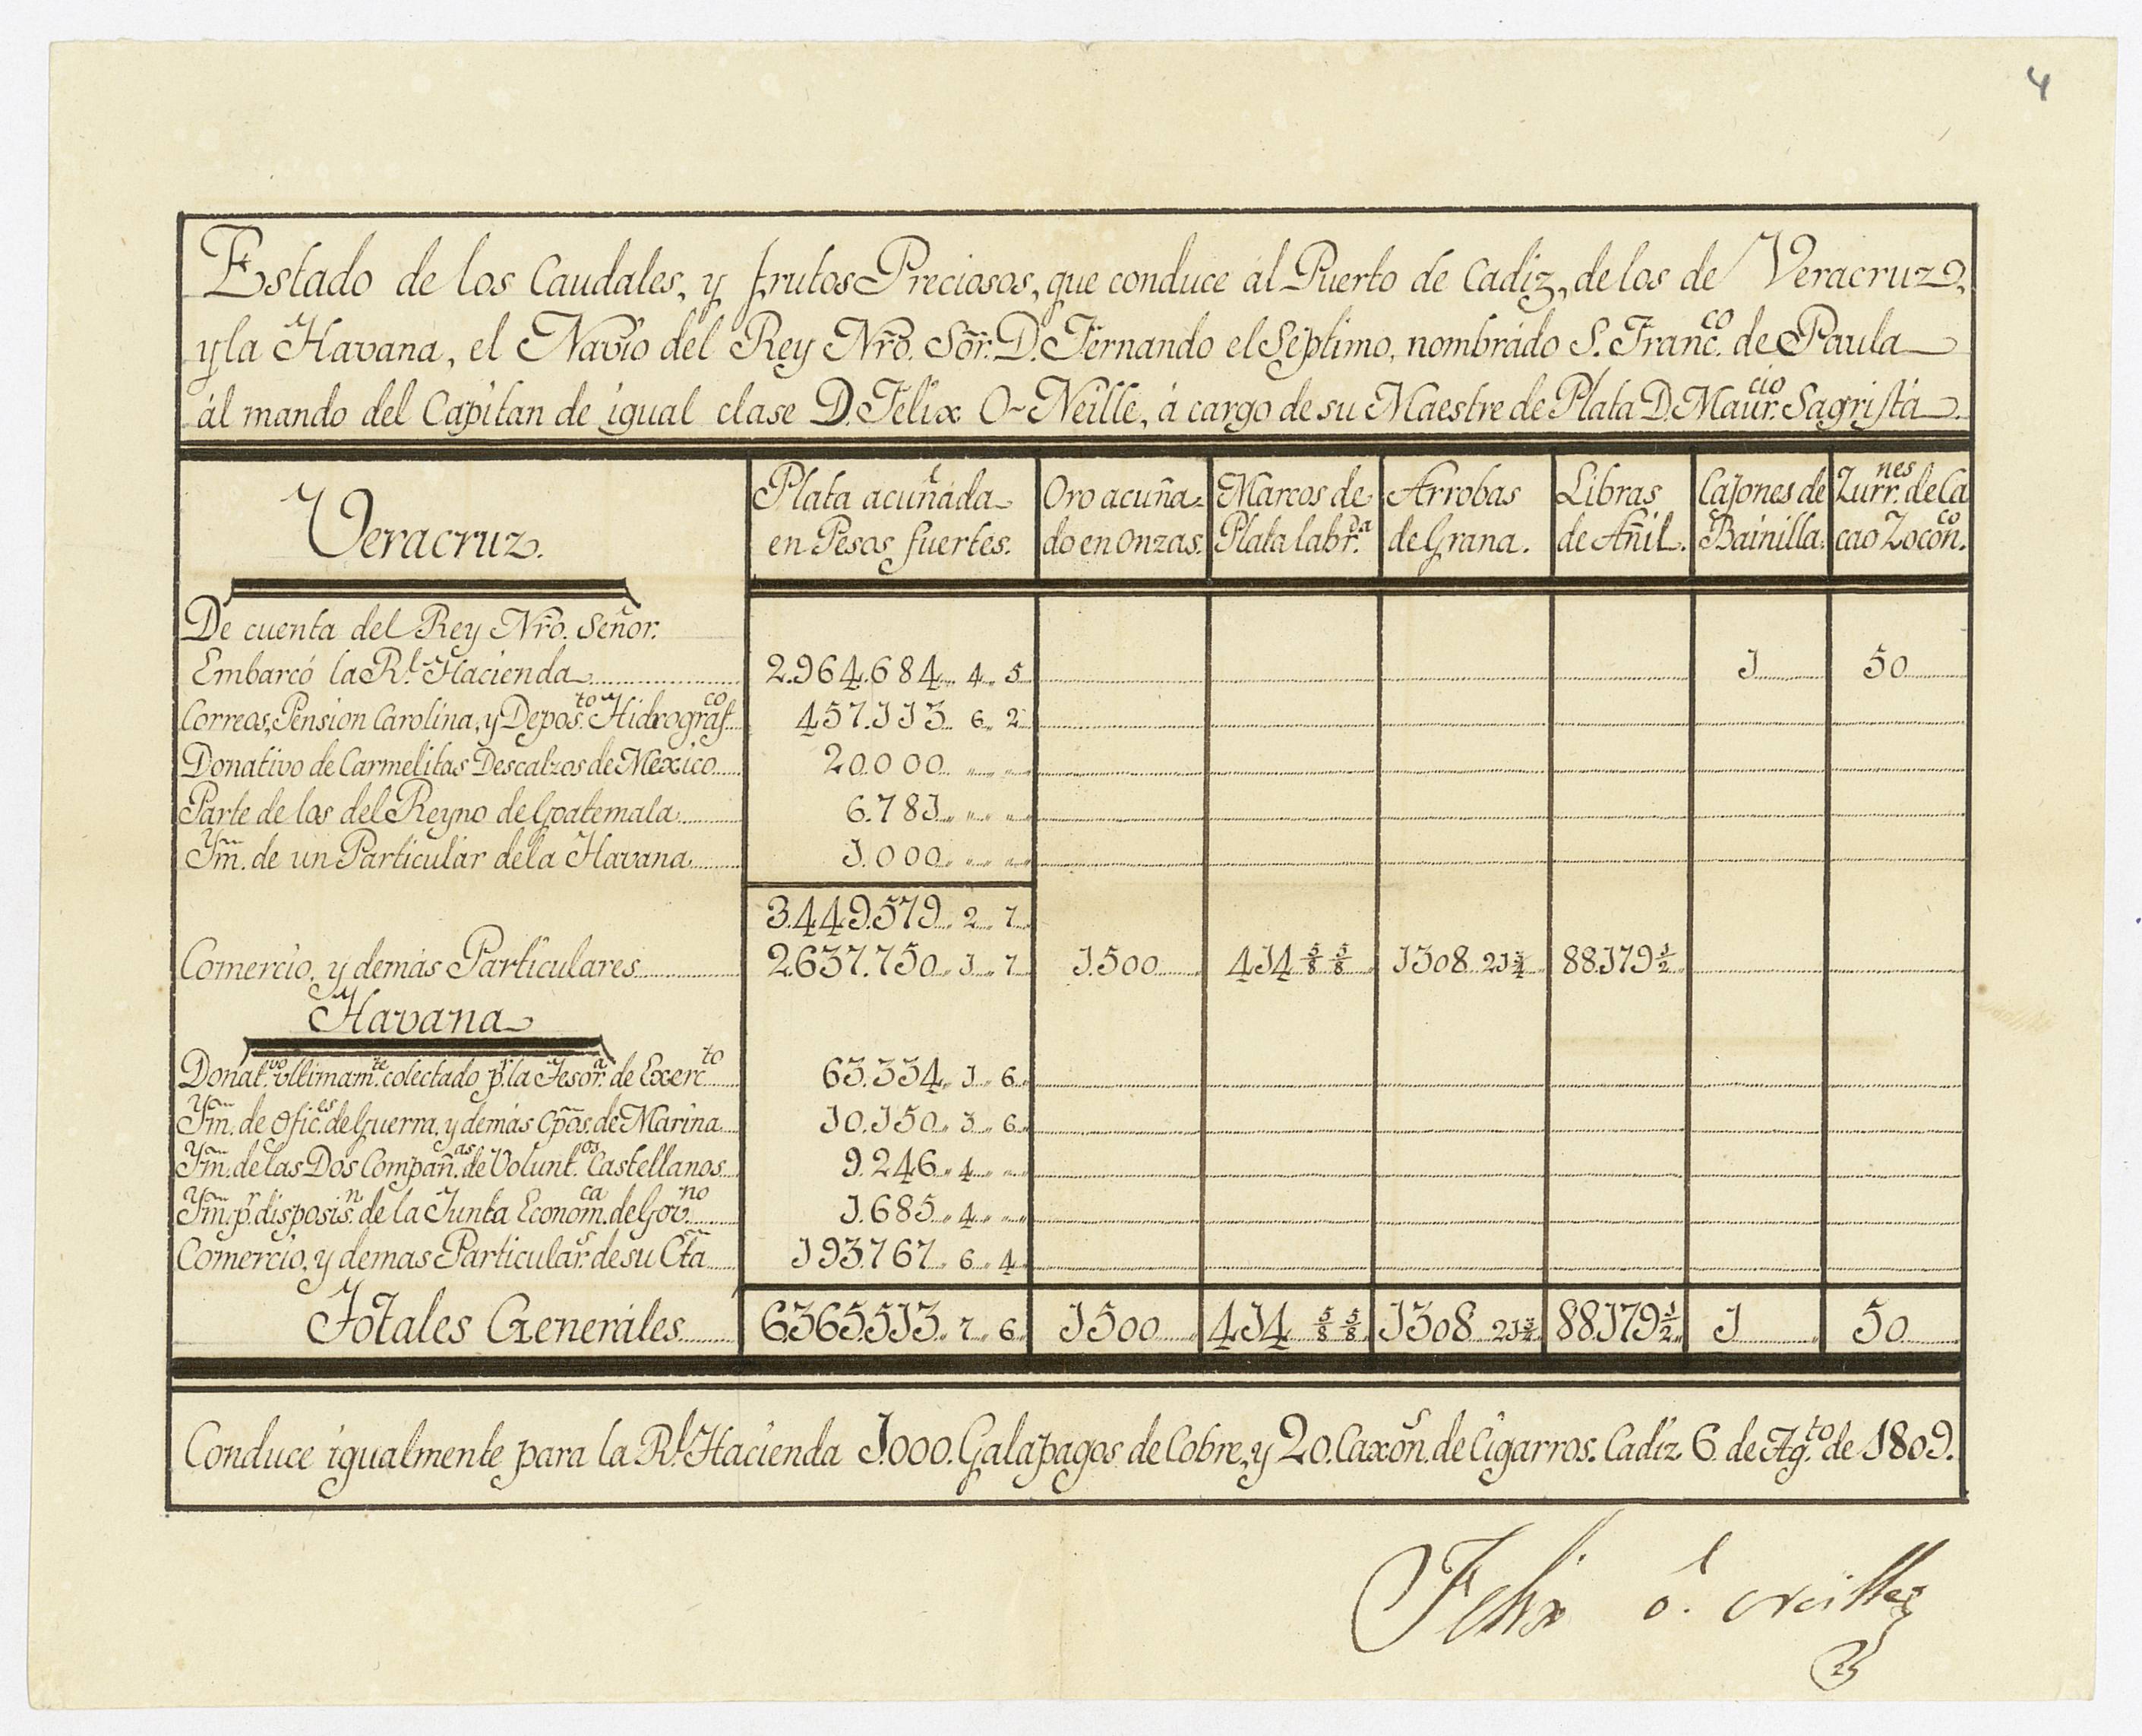 4
Estado de los Caudales, y frutos Preciosos, que conduce ál Puerto de Cadiz, de los de Veracruz,
y la Havana, el Navío del Rey Nro. Sor. D. Fernando el Septimo, nombrádo S. Franc.co de Paula
ál mando del Capitan de igual clase D. Felix O-Neille, á cargo de su Maestre de Plata D. Maur.cio Sagristá.
Veracruz. Plata acuñada en Pesos fuertes. Oro acuñado en Onzas. Marcos de Plata labr.da Arrobas de Grana. Libras de Añil. Cajones de Bainilla. Zurr.nes de Cacao Zocon.co
De cuenta del Rey Nro. Señor.
Embarcó la Rl. Hacienda 2.964.684.. 4.. 5 1 50
Correos, Pension Carolina, y Depos.to Hidrograf.co 457.113.. 6.. 2
Donativo de Carmelitas Descalzos de Mexico 20.000.. .. ..
Parte de los del Reyno de Goatemala 6.781.. .. ..
Ym. de un Particular de la Havana 1.000.. .. ..
3.449.579.. 2.. 7
Comercio, y demás Particulares 2.637.750.. 1.. 7 1.500 414 5/8 5/8 1308 21 3/4 88.179 1/2
Havana
Donat.vo ultimam.te colectado p.r la Tesor.a de Exerc.to 63.334.. 1.. 6
Ym. de Ofic.es de Guerra, y demás Cpos. de Marina 10.150.. 3.. 6
Ym. de las Dos Compañ.as de Volunt.os Castellanos 9.246.. 4.. ..
Ym. p.r disposis.n de la Junta Econom.ca de Gov.no 1.685.. 4.. ..
Comercio, y demas Particular.s de su Cta 193.767.. 6.. 4
Totales Generáles 6.365.513.. 7.. 6 1500 414 5/8 5/8 1308 21 3/4 88.179 1/2 1 50
Conduce igualmente para la Rl. Hacienda 1.000. Galápagos de Cobre, y 20. Caxon.s de Cigarros. Cadiz 6 de Ag.to de 1809.
Felix ó. Neille